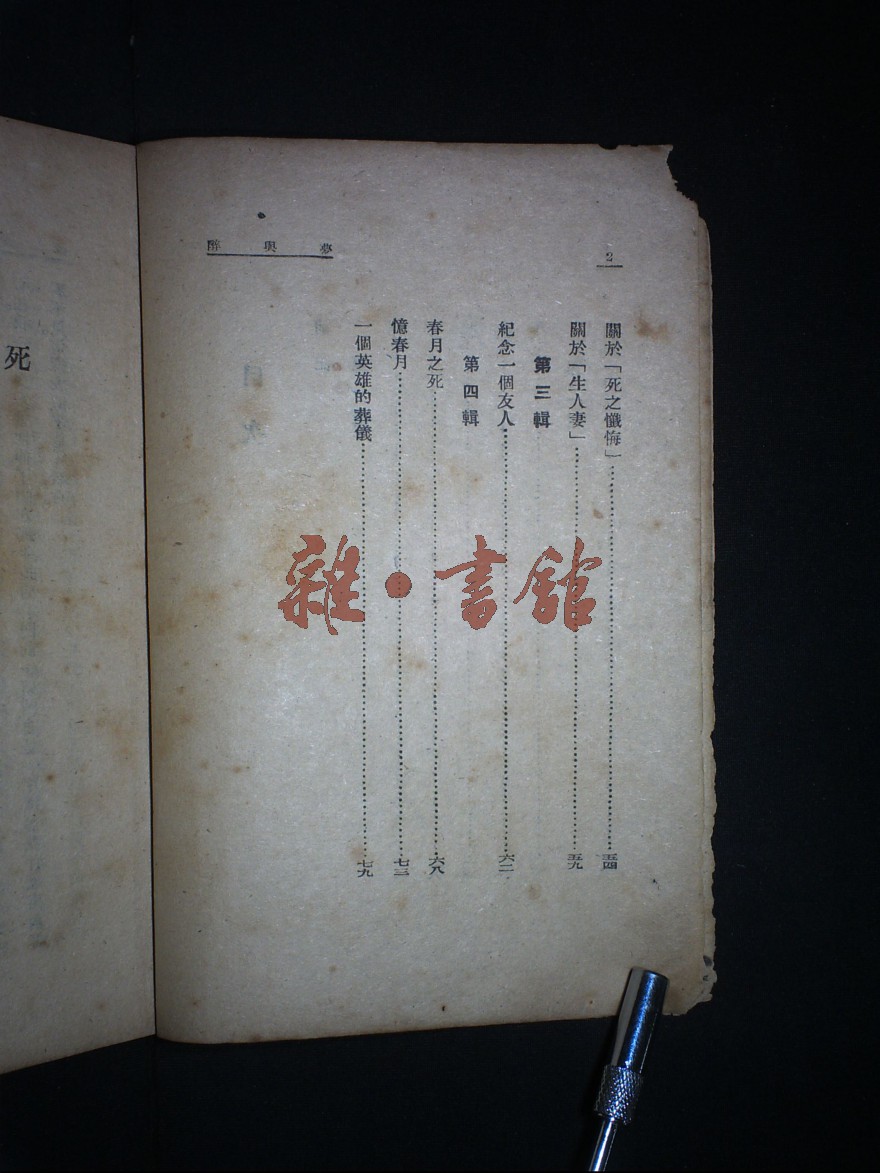 2
夢與醉
關於「死之懺悔」……五四
關於「生人妻」……五九
第三輯
紀念一個友人……六二
第四輯
春月之死……六八
憶春月……七三
一個英雄的葬儀……七九
死
雜・書館